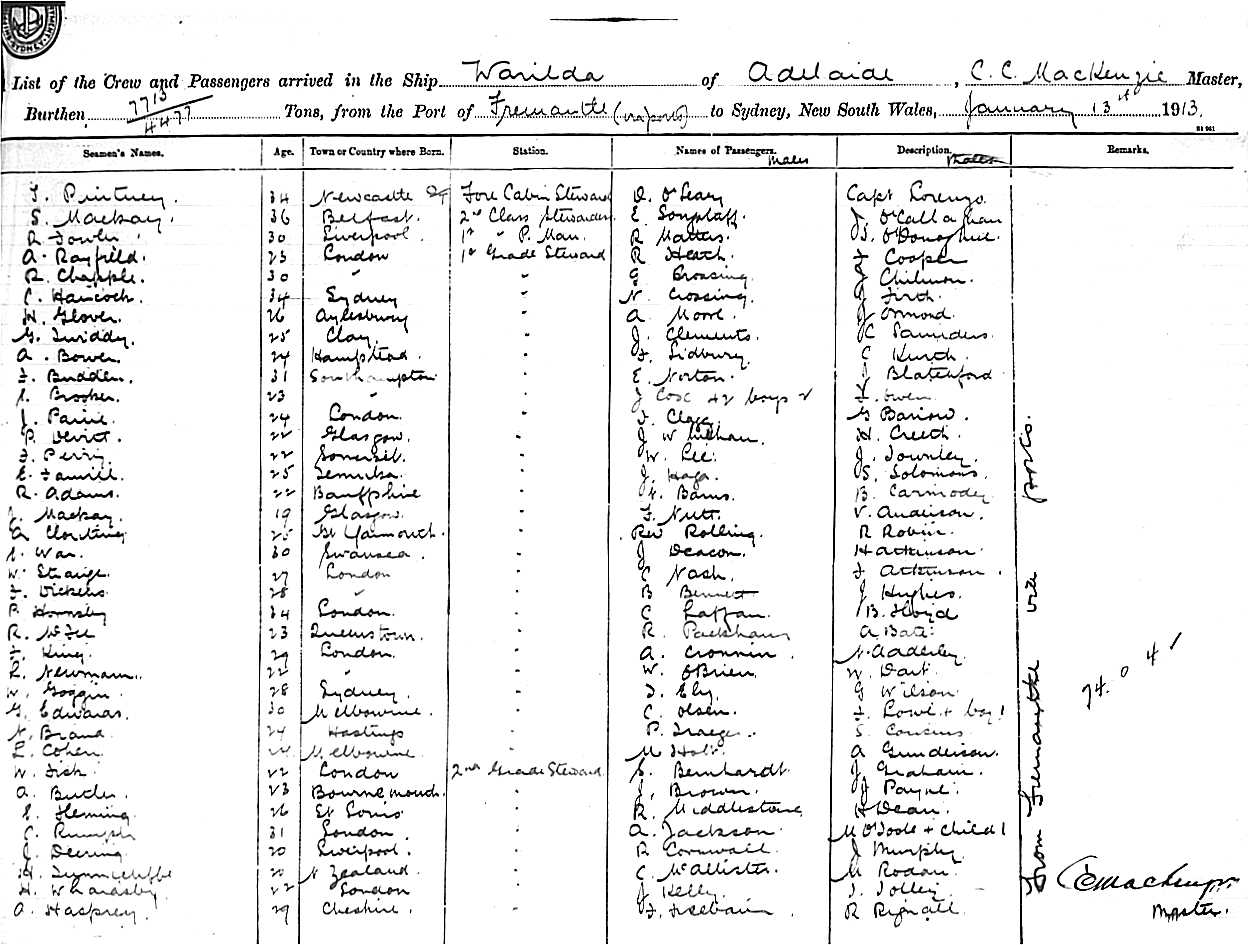 List of the Crew and Passengers arrived in the Ship Warilda of Adelaide, C. C. MacKenzie Master,
Burthen 7713/4477 Tons, from the Port of Fremantle (via ports) to Sydney, New South Wales, January 13th 1913.
Seamen's Names. Age. Town or Country where Born. Station. Names of Passengers. Males Description. Males Remarks.
34 Newcastle Fore Cabin Steward D. O'Leary Capt Lorenzo
S. Mackay. 36 Belfast. 2nd Class Stewardess E. J. O'Callaghan
R Fowler 30 Liverpool. 1st " P. Man R Matters. S. O'Donoghue
A. Rayfield. 23 London 1st Grade Steward R Heath. Cooper
R. Chapple. 30 " " G Brossing. J Chilman.
C. Hancock. 34 Sydney " N. Crossing. J Firth.
H. Glover. 26 Aylesbury " A Moore. J Ormond.
G. Twiddy. 25 Clay " J. Clements. C Saunders.
A. Bower. 24 Hampstead. " F. Sidbury. C Kurth.
F. Budden. 31 Southampton " E. Norton. Blatchford
Brooker. 23 " " J Cox + 2 boys 2 Owen
J. 24 London. " F. G Barlow.
P. Devitt. 22 Glasgow. " J W H. Creeth.
F. Perry. 22 Somerset. " W. Lee. J. Townley.
E. 25 Temuka. " J. S. Solomons.
R. Adams. 22 Banffshire " F. Barns. B. Carmody
Mackay. 19 Glasgow. " F. Nutt. V. Anderson.
25 Gt Yarmouth. " Rev Rolling. R Robin.
War. 30 Swansea. " J Deacon. H Atkinson.
W. Strange. 27 London " C Nash. F Atkinson.
F. Dickens. 28 " " B Bennett J Hughes.
P. Hornsby 34 London. " C Laffan. B. Floyd
R. McFee 23 Queenstown. " R. Packham A Bate.
F. King. 29 London. " A. Cronnin. N. Aaderley
R. Newmann. 22 " " W. O'Brien W. Dart.
W. Goggin. 28 Sydney. " J. Ely. G Wilson
G. Edwards. 30 Melbourne. " C. Olsen. F. Lowe + boy 1
N. Brand. 24 Hastings " P. Traeger. S. Cousins
L. Cohen. 24 Melbourne. " M Holt. A Gunderson.
W. Fisk. 22 London 2nd Grade Steward S. Bernhardt. J. Graham.
A. Butler. 23 Bournemouth. " J. Brown. J Payne.
Fleming. 26 St Louis " R. Middlestone H Dean.
C. Rumph 31 London. " A. Jackson. M O'Toole + child 1
C. Deering. 20 Liverpool. " R Cornwall. J Murphy.
20 N Zealand. " C. McAllister. M Rodan.
H. 22 London " J Kelly. J. Jolley.
A. 29 Cheshire. " F. R Rignall.
From Fremantle via ports.
74. 0 4 1
CC MacKenzie
Master.